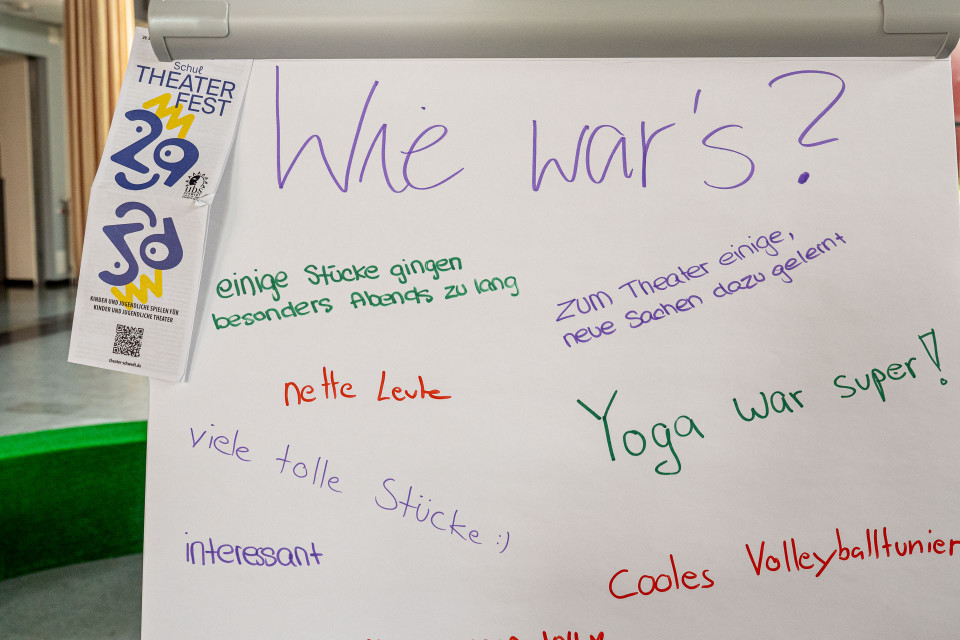 Schul
THEATER
FEST
29
ubs
KINDER UND JUGENDLICHE SPIELEN FÜR
KINDER UND JUGENDLICHE THEATER
theater-schwedt.de
Wie war's?
einige Stücke gingen
besonders Abends zu lang
zum Theater einige,
neue Sachen dazu gelernt
nette Leute
Yoga war super!
viele tolle Stücke :)
interessant
Cooles Volleyballtunier